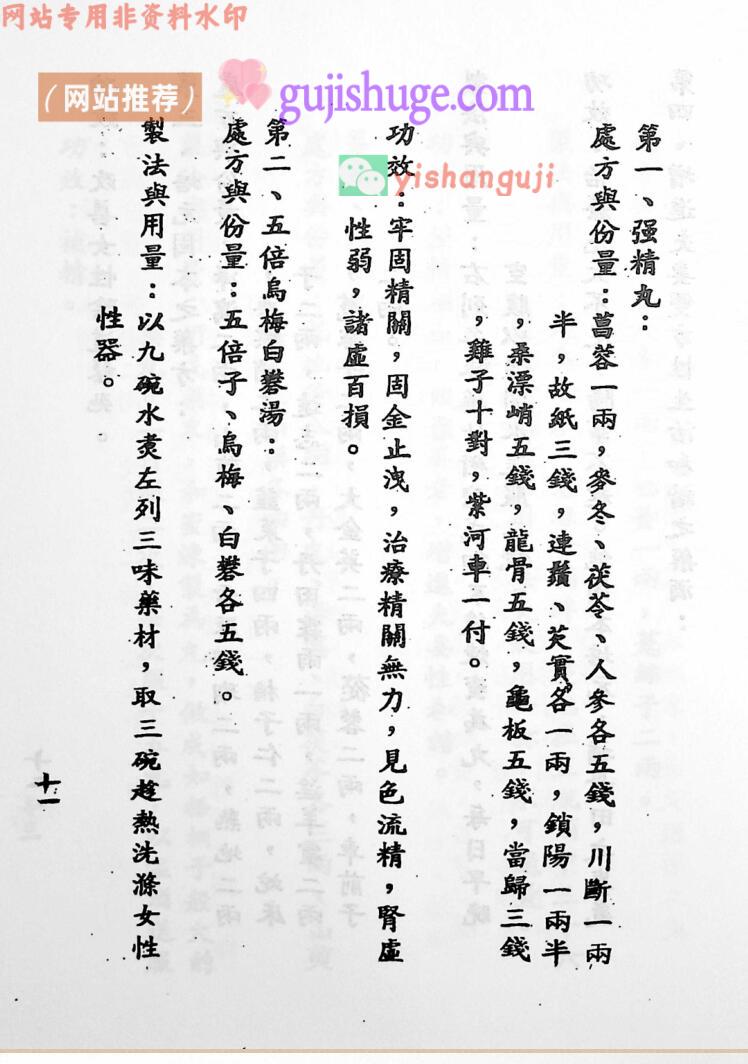 网站专用非资料水印
（网站推荐） gujishuge.com
yishanguji
第一、强精丸：
處方與份量：菖蓉一兩，麥冬、茯苓、人參各五錢，川斷一兩
半，故紙三錢，連鬚、芡實各一兩，鎖陽一兩半
，桑漂峭五錢，龍骨五錢，龜板五錢，當歸三錢
，雞子十對，紫河車一付。
功效：牢固精關，固金止洩，治療精關無力，見色流精，腎虛
性弱，諸虛百損。
第二、五倍烏梅白礬湯：
處方與份量：五倍子、烏梅、白礬各五錢。
製法與用量：以九碗水煑左列三味藥材，取三碗趁熱洗滌女性
性器。
十一